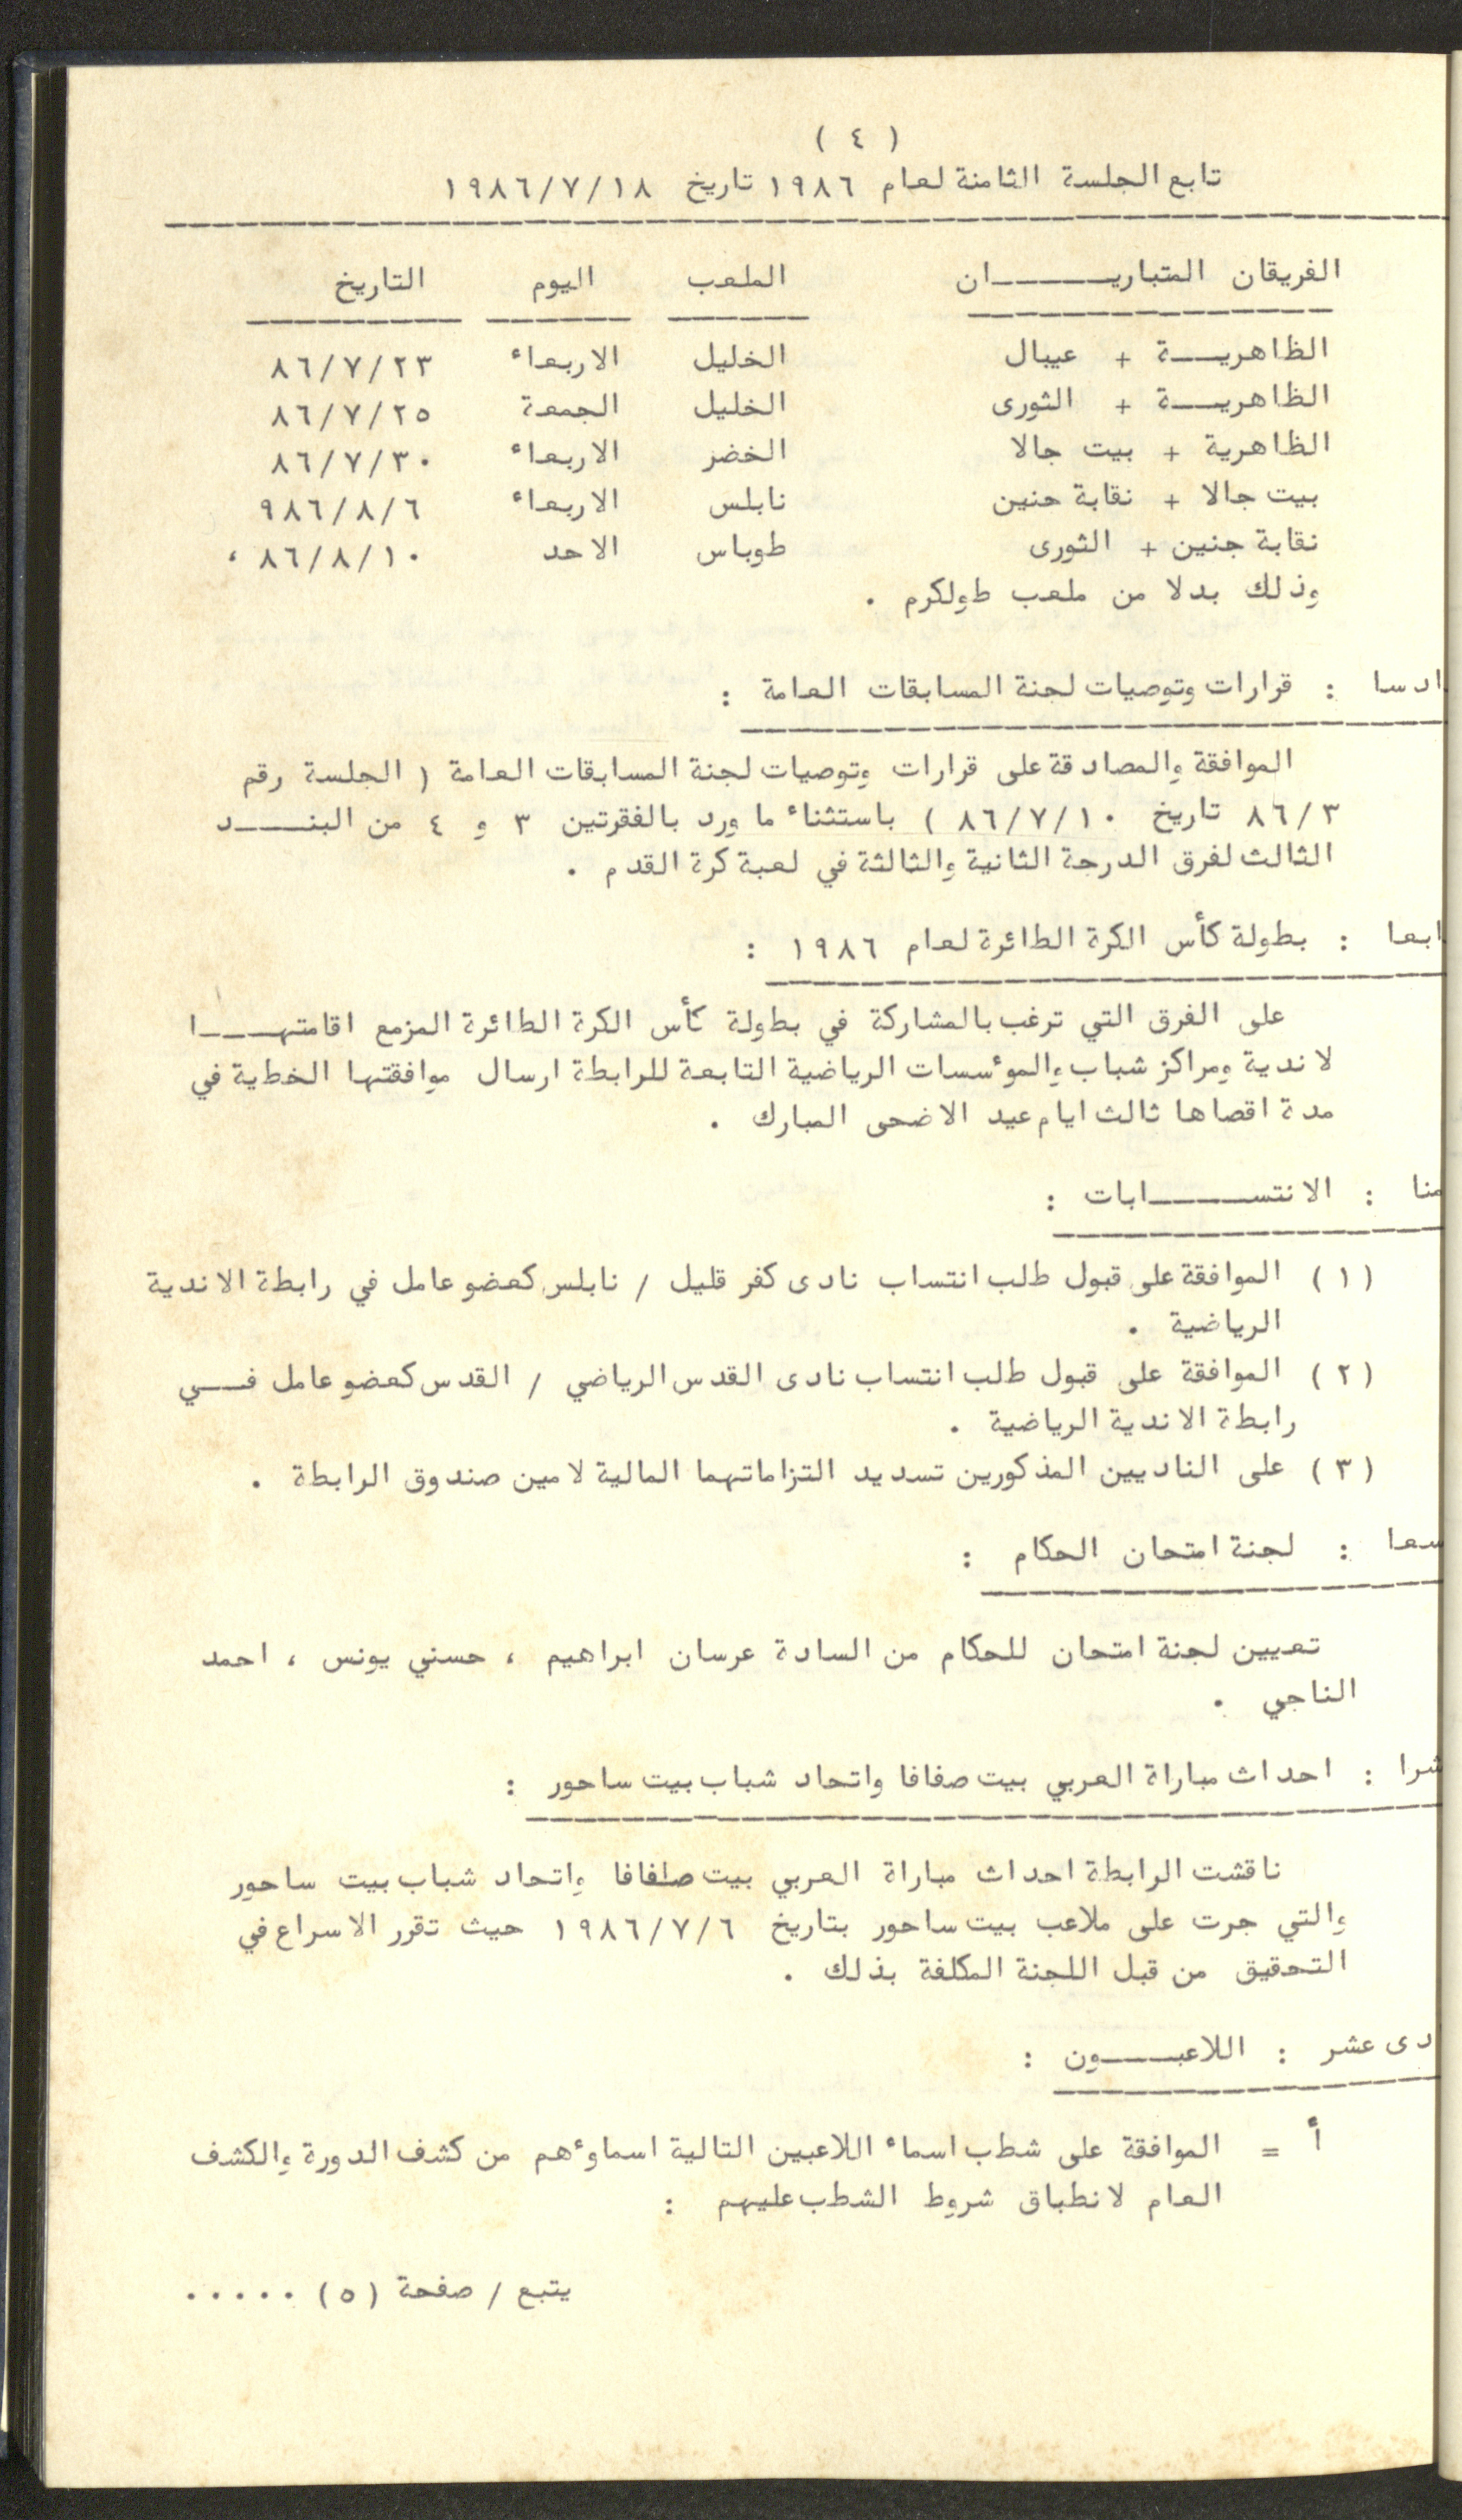 ( ٤ )
تابع الجلسة الثامنة لعام ١٩٨٦ تاريخ ١٩٨٦/٧/١٨
الفريقان المتباريـــــان الملعب اليوم التاريخ
الظاهريـــة + عيبال الخليل الاربعاء ٨٦/٧/٢٣
الظاهريـــة + الثورى الخليل الجمعة ٨٦/٧/٢٥
الظاهرية + بيت جالا الخضر الاربعاء ٨٦/٧/٣٠
بيت جالا + نقابة حنين نابلس الاربعاء ٩٨٦/٨/٦
نقابة جنين + الثورى طوباس الاحد ٨٦/٨/١٠ ،
وذلك بدلا من ملعب طولكرم .
ادسا : قرارات وتوصيات لجنة المسابقات العامة :
الموافقة والمصادقة على قرارات وتوصيات لجنة المسابقات العامة ( الجلسة رقم
٨٦/٣ تاريخ ٨٦/٧/١٠ ) باستثناء ما ورد بالفقرتين ٣ و ٤ من البنـــد
الثالث لفرق الدرجة الثانية والثالثة في لعبة كرة القدم .
ابعا : بطولة كأس الكرة الطائرة لعام ١٩٨٦ :
على الفرق التي ترغب بالمشاركة في بطولة كأس الكرة الطائرة المزمع اقامتهـــا
لاندية ومراكز شباب والموئسسات الرياضية التابعة للرابطة ارسال موافقتها الخطية في
مدة اقصاها ثالث ايام عيد الاضحى المبارك .
منا : الانتســـــابات :
(١) الموافقة على قبول طلب انتساب نادى كفر قليل / نابلس كعضو عامل في رابطة الاندية
الرياضية .
(٢) الموافقة على قبول طلب انتساب نادى القدس الرياضي / القدس كعضو عامل فـــي
رابطة الاندية الرياضية .
(٣) على الناديين المذكورين تسديد التزاماتهما المالية لامين صندوق الرابطة .
سعا : لجنة امتحان الحكام :
تعيين لجنة امتحان للحكام من السادة عرسان ابراهيم ، حسني يونس ، احمد
الناجي .
شرا : احداث مباراة العربي بيت صفافا واتحاد شباب بيت ساحور :
ناقشت الرابطة احداث مباراة العربي بيت صافافا واتحاد شباب بيت ساحور
والتي جرت على ملاعب بيت ساحور بتاريخ ١٩٨٦/٧/٦ حيث تقرر الاسراع في
التحقيق من قبل اللجنة المكلفة بذلك .
دى عشر : اللاعبــــون :
أ = الموافقة على شطب اسماء اللاعبين التالية اسماوئهم من كشف الدورة والكشف
العام لانطباق شروط الشطب عليهم :
يتبع / صفحة (٥) .....